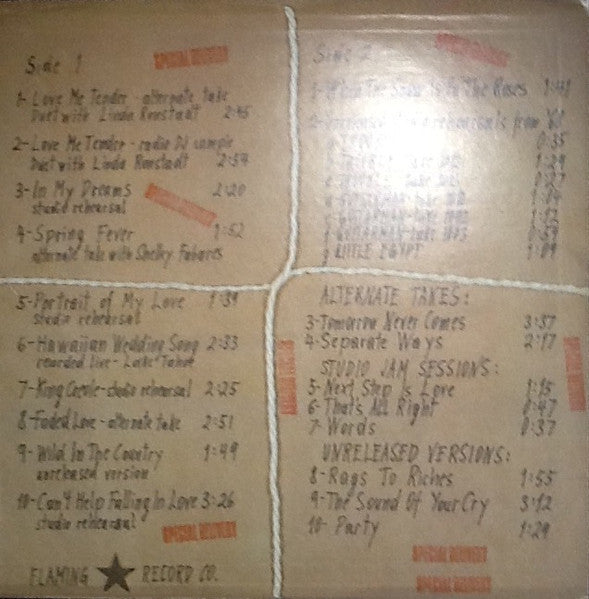 Side 1
SPECIAL DELIVERY
1- Love Me Tender - alternate take
Duet with Linda Ronstadt 2:45
2- Love Me Tender - radio DJ sample
Duet with Linda Ronstadt 2:39
3- In My Dreams 2:20
studio rehearsal
4- Spring Fever 1:52
alternate take with Shelley Fabares
5- Portrait of My Love 1:39
studio rehearsal
6- Hawaiian Wedding Song 2:33
recorded live - Lake Tahoe
7- King Creole - studio rehearsal 2:25
8- Faded Love - alternate take 2:51
9- Wild In The Country 1:49
unreleased version
10- Can't Help Falling In Love 3:26
studio rehearsal
SPECIAL DELIVERY
FLAMING ★ RECORD CO.
Side 2
1- The Roses
rehearsals from
0:35
1:29
1:04
1:52
0:59
LITTLE EGYPT 1:09
ALTERNATE TAKES:
3- Tomorrow Never Comes 3:37
4- Separate Ways 2:17
STUDIO JAM SESSIONS:
5- Next Step Is Love 1:15
6- That's All Right 0:47
7- Words 0:37
UNRELEASED VERSIONS:
8- Rags To Riches 1:55
9- The Sound Of Your Cry 3:12
10- Party 1:29
SPECIAL DELIVERY
SPECIAL DELIVERY